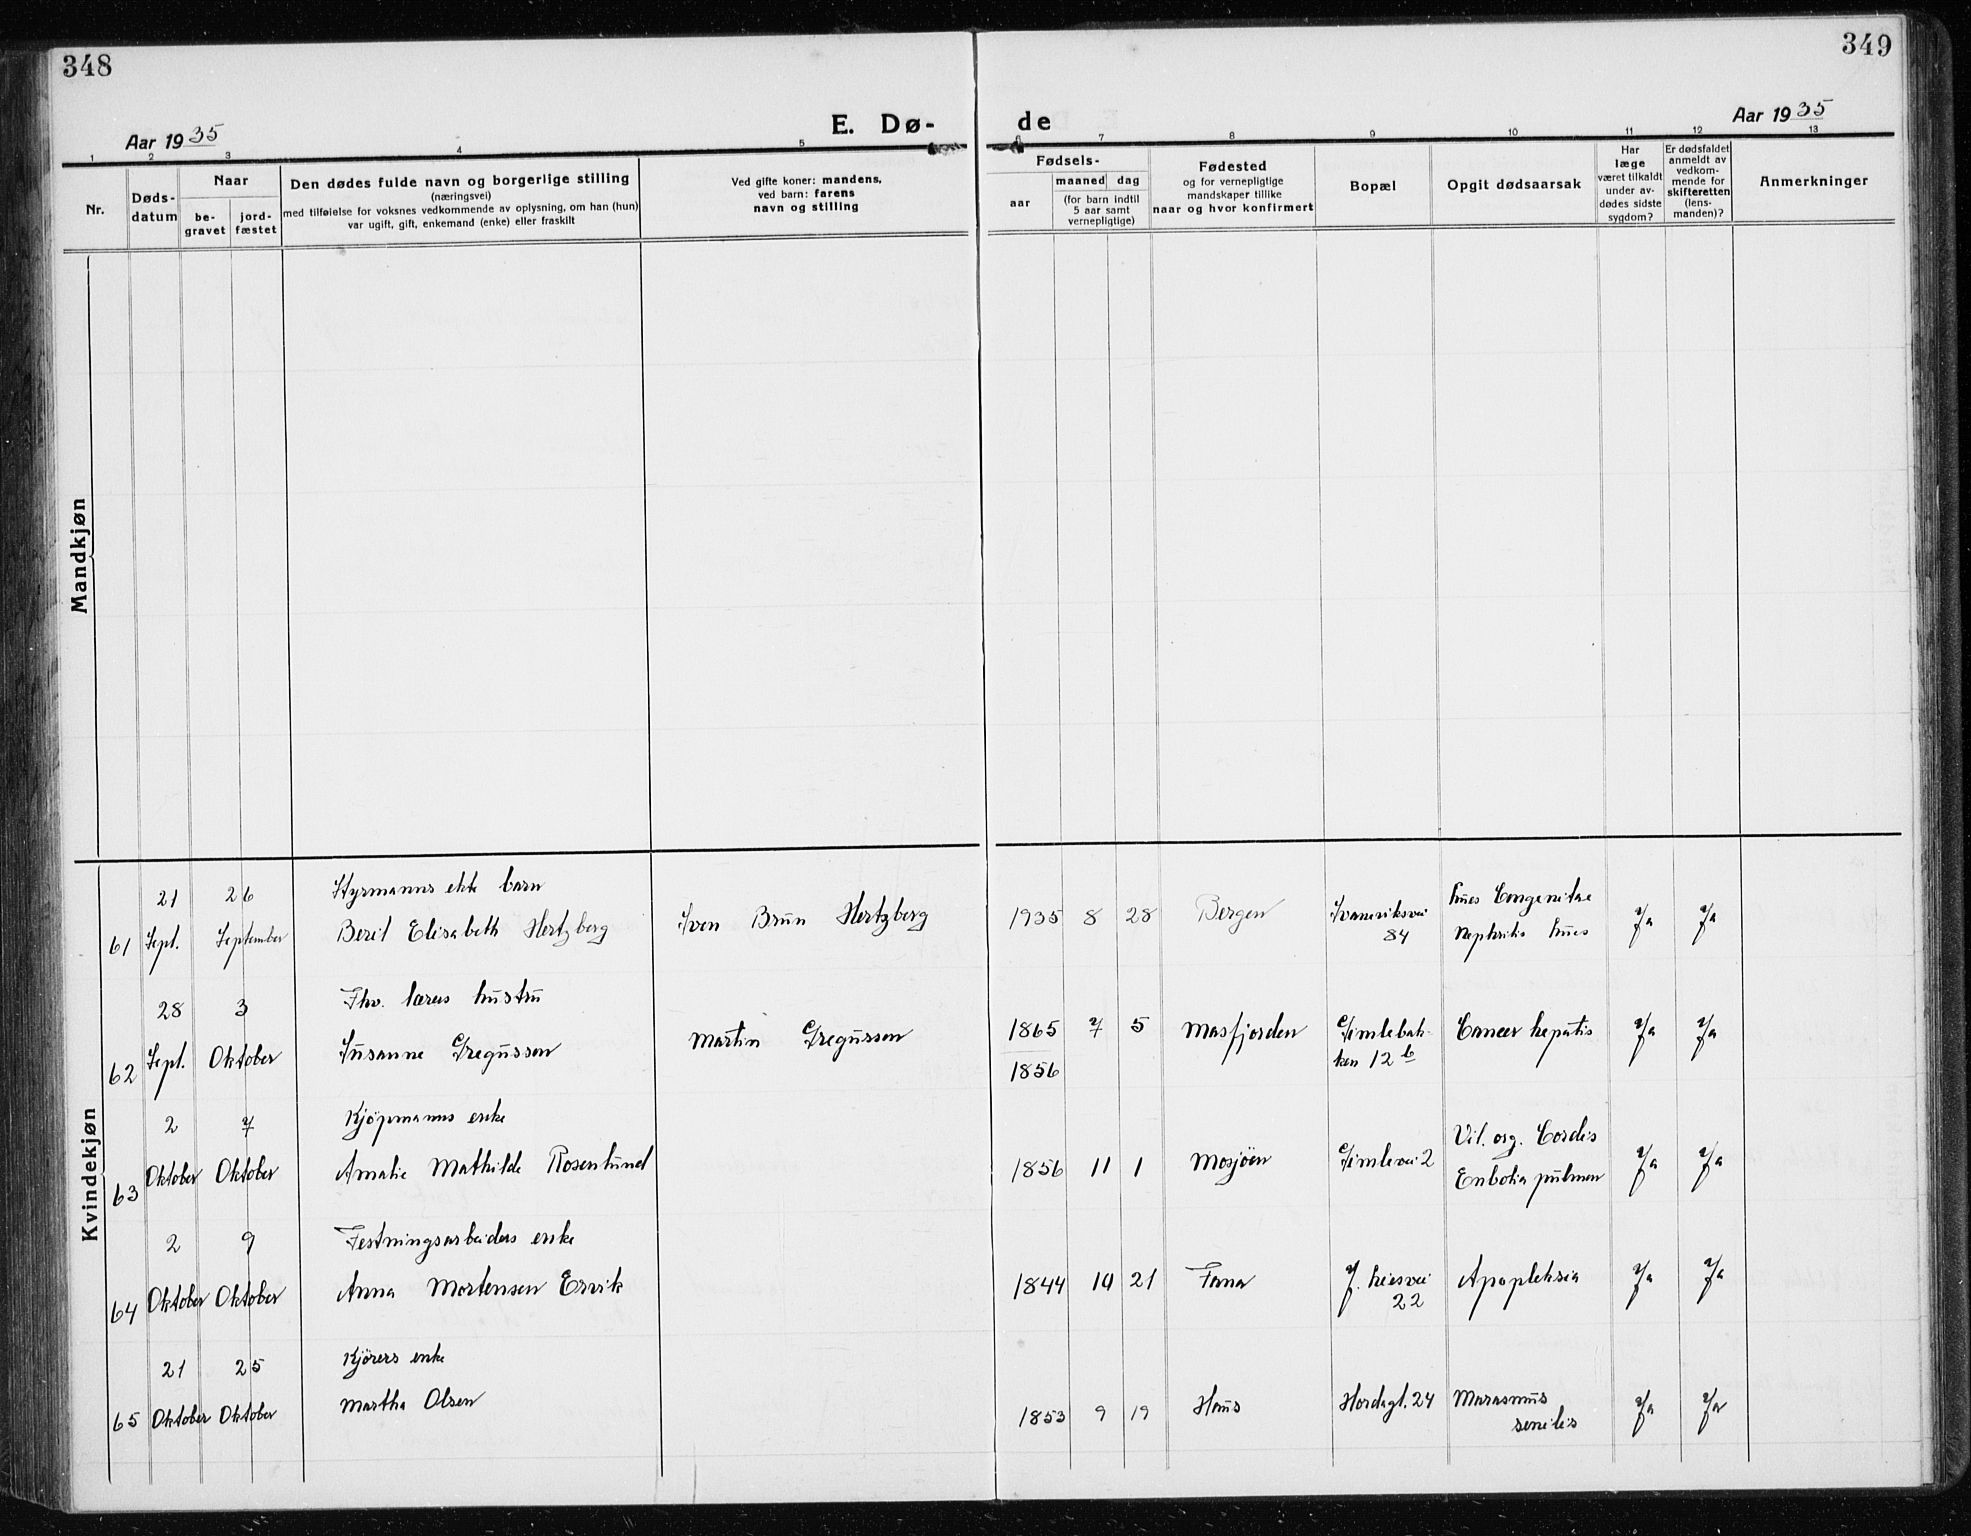 348
349
Aar 1935
E. Dø-
de
Aar 1935
1 2 3 4 5 6 7 8 9 10 11 12 13
Nr.
Døds-
datum
Naar
be-
gravet
jord-
fæstet
Den dødes fulde navn og borgerlige stilling
(næringsvei)
med tilføielse for voksnes vedkommende av oplysning, om han (hun)
var ugift, gift, enkemand (enke) eller fraskilt
Ved gifte koner: mandens,
ved barn: farens
navn og stilling
Fødsels-
aar
maaned dag
(for barn indtil
5 aar samt
vernepligtige)
Fødested
og for vernepligtige
mandskaper tillike
naar og hvor konfirmert
Bopæl
Opgit dødsaarsak
Har
læge
været tilkaldt
under av-
dødes sidste
sygdom?
Er dødsfaldet
anmeldt av
vedkom-
mende for
skifteretten
(lens-
manden)?
Anmerkninger
Mandkjøn
Kvindekjøn
21 26 Styrmanns ekte barn
61 Sept. September Berit Elisabeth Hertzberg Sven Brun Hertzberg 1935 8 28 Bergen
84
Lues Congenitae
Nephritis Lues
Ja Ja
28 3 Fhv. lærers hustru
62 Sept. Oktober Susanne Gregussen Martin Gregussen 1865 7 5 Masfjorden Gimlebak-
ken 12 b
Cancer hepatis Ja Ja
1856
2 7 Kjöpmanns enke
63 Oktober Oktober Amalie Mathilde Rosenlund 1856 11 1 Mosjöen Gimlevei 2
Vit. org. Cordis
Enbolia pulmon
Ja Ja
2 9 Festningsarbeiders enke
64 Oktober Oktober Anna Mortensen Ervik 1844 10 21 Fana J. Liesvei
22
Apopleksia Ja Ja
21 25 Kjörers enke
65 Oktober Oktober Martha Olsen 1853 9 19 Haus Hordagt. 24 Marasmus
senilis
Ja Ja